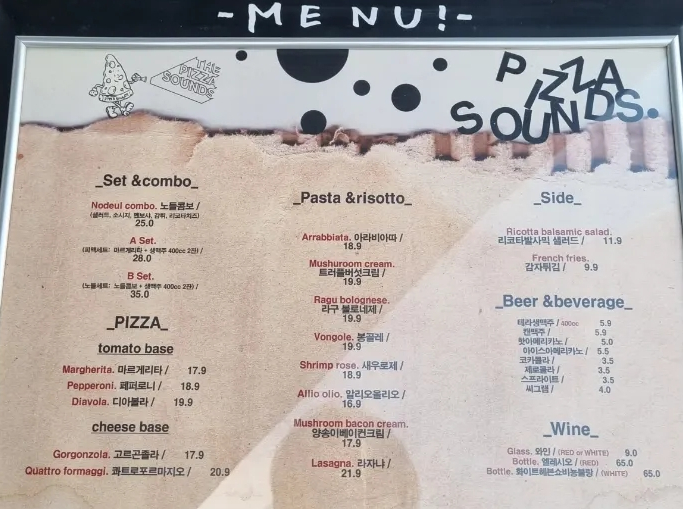 -MENU!-
THE
PIZZA
SOUNDS
PIZZA
SOUNDS.
_Set &combo_
Nodeul combo. 노들콤보 /
25.0
A Set.
(피맥세트: 마르게리타 + 생맥주 400cc 2잔) /
28.0
B Set.
(노들세트: 노들콤보 + 생맥주 400cc 2잔) /
35.0
_PIZZA_
tomato base
Margherita. 마르게리타 / 17.9
Pepperoni. 페퍼로니 / 18.9
Diavola. 디아볼라 / 19.9
cheese base
Gorgonzola. 고르곤졸라 / 17.9
Quattro formaggi. 콰트로포르마지오 / 20.9
_Pasta &risotto_
Arrabbiata. 아라비아따 /
18.9
Mushuroom cream.
트러플버섯크림 /
19.9
Ragu bolognese.
라구 볼로네제 /
19.9
Vongole. 봉골레 /
19.9
Shrimp rose. 새우로제 /
18.9
Allio olio. 알리오올리오 /
16.9
Mushroom bacon cream.
양송이베이컨크림 /
17.9
Lasagna. 라자냐 /
21.9
_Side_
Ricotta balsamic salad.
리코타발사믹 샐러드 / 11.9
French fries.
감자튀김 / 9.9
_Beer &beverage_
테라생맥주 / 400cc 5.9
캔맥주 / 5.9
핫아메리카노 / 5.0
아이스아메리카노 / 5.5
코카콜라 / 3.5
제로콜라 / 3.5
스프라이트 / 3.5
씨그램 / 4.0
_Wine_
Glass. 와인 / (RED or WHITE) 9.0
Bottle. 엘레시오 / (RED) 65.0
Bottle. / (WHITE) 65.0